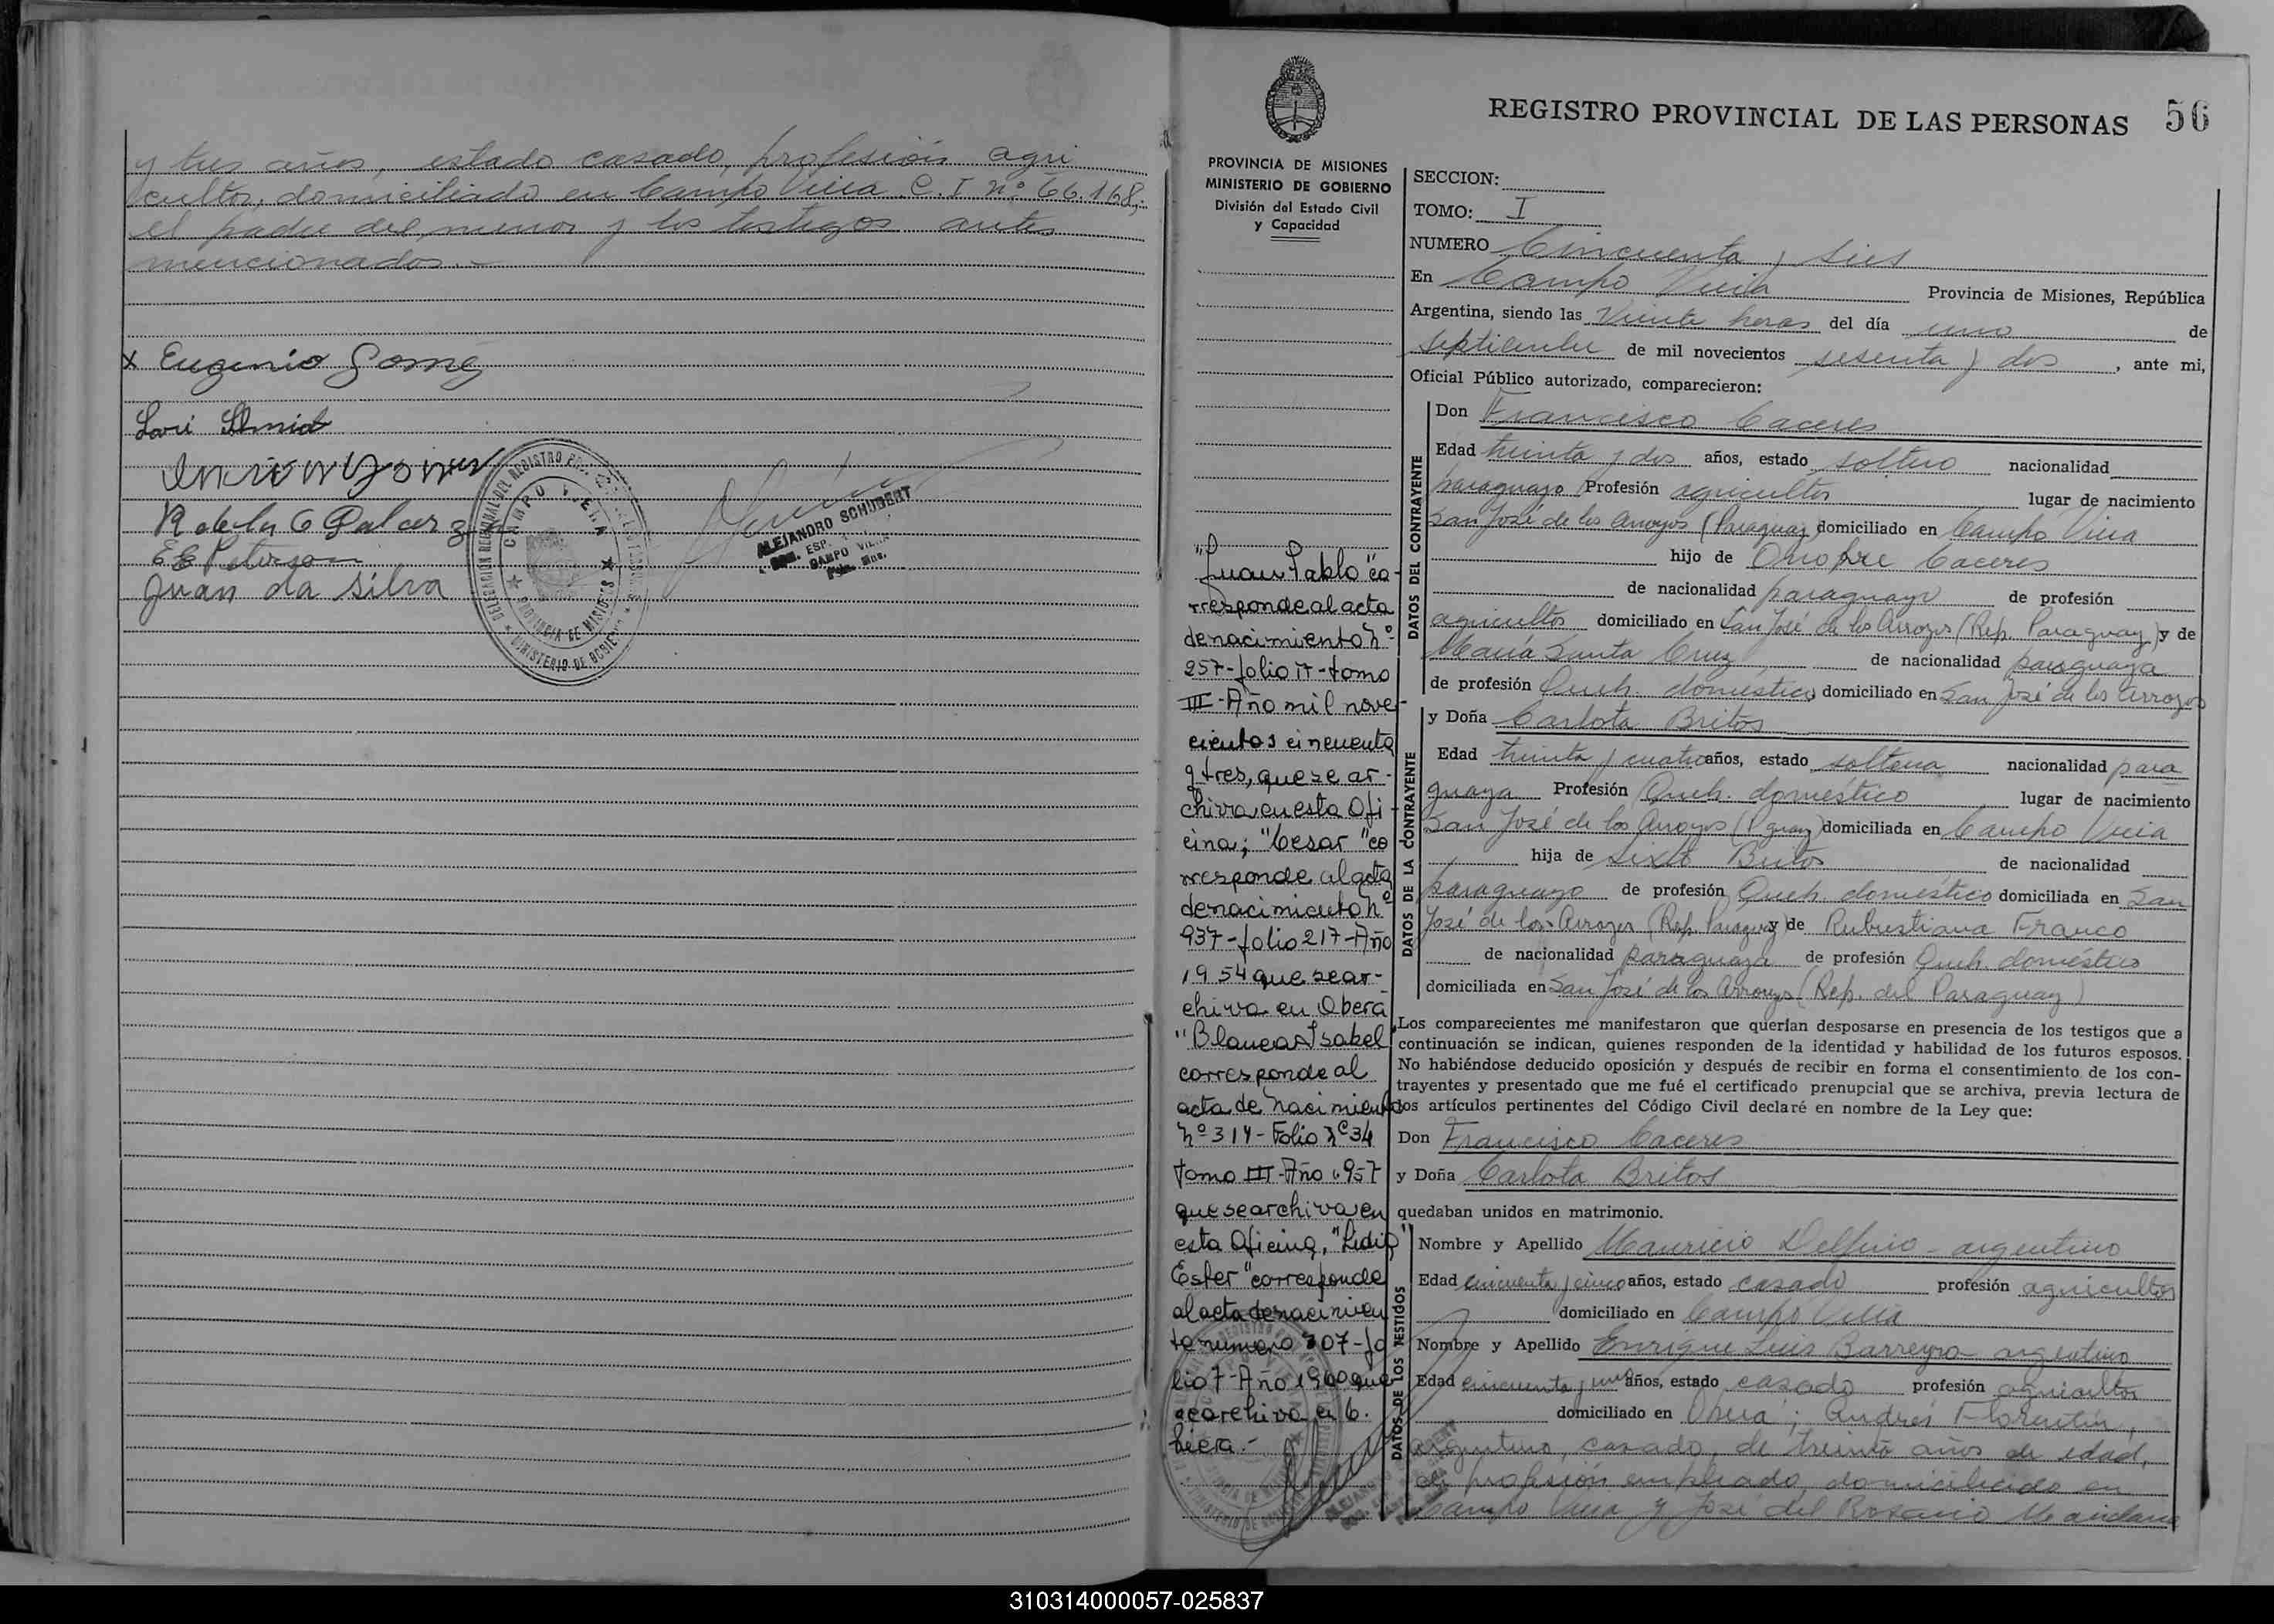 y tres años, estado casado, profesión agri
cultor, domiciliado en Campo Viera C. I nº 66.168,
el padre del menor y los testigos antes
mencionados.-
x Eugenio Gomez
Juan da silva
ALEJANDRO SCHUBERT
CAMPO VIERA
REGISTRO PROVINCIAL DE LAS PERSONAS 56
PROVINCIA DE MISIONES
MINISTERIO DE GOBIERNO
División del Estado Civil
y Capacidad
"Juan Pablo" co-
rresponde al acta
de nacimiento nº
257-folio 17-tomo
III-Año mil nove-
cientos cincuenta
y tres, que se ar-
chiva en esta Ofi-
cina; "Cesar" co
rresponde al acta
de nacimiento nº
937-folio 217-Año
1954 que se ar-
chiva en Oberá
"Blanca Isabel
corresponde al
acta de nacimiento
nº 314-Folio nº 34
tomo III-Año 1957
que se archiva en
esta Oficina, "Lidia
Ester" corresponde
al acta de nacimien
to numero 307-fo
lio 7-Año 1960 que
se archiva en C.
Viera.-
SECCION:
TOMO: I
NUMERO Cincuenta y seis
En Campo Viera Provincia de Misiones, República
Argentina, siendo las veinte horas del día uno de
septiembre de mil novecientos sesenta y dos, ante mi,
Oficial Público autorizado, comparecieron:
DATOS DEL CONTRAYENTE
Don Francisco Caceres
Edad treinta y dos años, estado soltero nacionalidad
paraguayo Profesión agricultor lugar de nacimiento
San José de los Arroyos (Paraguay) domiciliado en Campo Viera
hijo de Onofre Caceres
de nacionalidad paraguayo de profesión
agricultor domiciliado en San José de los Arroyos (Rep. Paraguay) y de
María Santa Cruz de nacionalidad paraguaya
de profesión Queh. domésticos domiciliado en San José de los Arroyos
DATOS DE LA CONTRAYENTE
y Doña Carlota Britos
Edad treinta y cuatro años, estado soltera nacionalidad para
guaya Profesión Queh. doméstico lugar de nacimiento
San José de los Arroyos (P guay) domiciliada en Campo Viera
hija de Sixto Britos de nacionalidad
paraguayo de profesión Queh. doméstico domiciliada en San
José de los Arroyos (Rep. Paraguay) y de Rubustiana Franco
de nacionalidad paraguaya de profesión Queh. doméstico
domiciliada en San José de los Arroyos (Rep. del Paraguay)
Los comparecientes me manifestaron que querían desposarse en presencia de los testigos que a
continuación se indican, quienes responden de la identidad y habilidad de los futuros esposos.
No habiéndose deducido oposición y después de recibir en forma el consentimiento de los con-
trayentes y presentado que me fué el certificado prenupcial que se archiva, previa lectura de
los artículos pertinentes del Código Civil declaré en nombre de la Ley que:
Don Francisco Caceres
y Doña Carlota Britos
quedaban unidos en matrimonio.
DATOS DE LOS TESTIGOS
Nombre y Apellido Mauricio Delfino - argentino
Edad cincuenta y cinco años, estado casado profesión agricultor
domiciliado en Campo Viera
Nombre y Apellido Enrique Luis Barreyro - argentino
Edad cincuenta y un años, estado casado profesión agricultor
domiciliado en Oberá; Andrés Florentin,
argentino, casado, de treinta años de edad,
de profesión empleado, domiciliado en
Campo Viera y José del Rosario Maidana
310314000057-025837